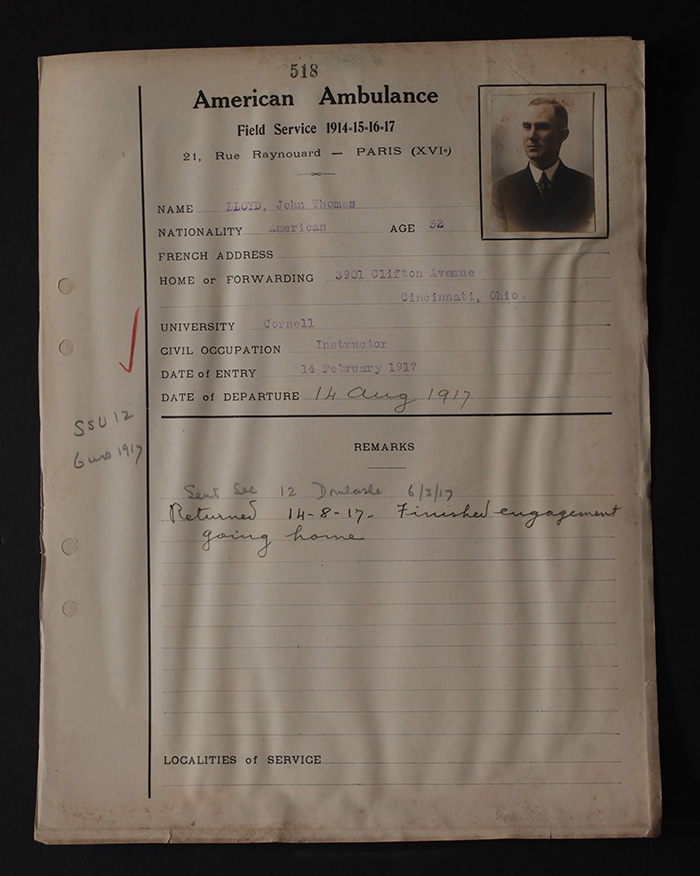 518
American Ambulance
Field Service 1914-15-16-17
21, Rue Raynouard — PARIS (XVIe)
NAME LLOYD, John Thomas
NATIONALITY American AGE 32
FRENCH ADDRESS
HOME or FORWARDING 3901 Clifton Avenue
Cincinnati, Ohio.
UNIVERSITY Cornell
CIVIL OCCUPATION Instructor
DATE of ENTRY 14 February 1917
DATE of DEPARTURE 14 Aug 1917
SSU 12
6 1917
REMARKS
Sent Sec 12 6/3/17
Returned 14-8-17- Finished engagement
going home
LOCALITIES of SERVICE